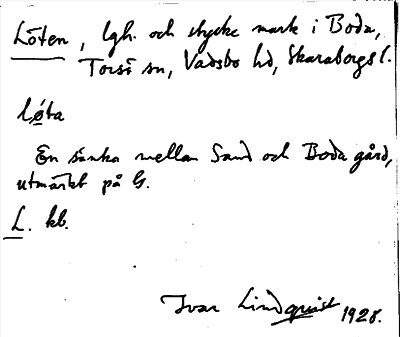 Löten, lgh. och stycke mark i Boda,
Torsö sn, Vadsbo hd, Skaraborgs l.
Løta
En sänka mellan Sand och Boda gård,
utmärkt på G.
L. kb.
Ivar Lindquist 1928.